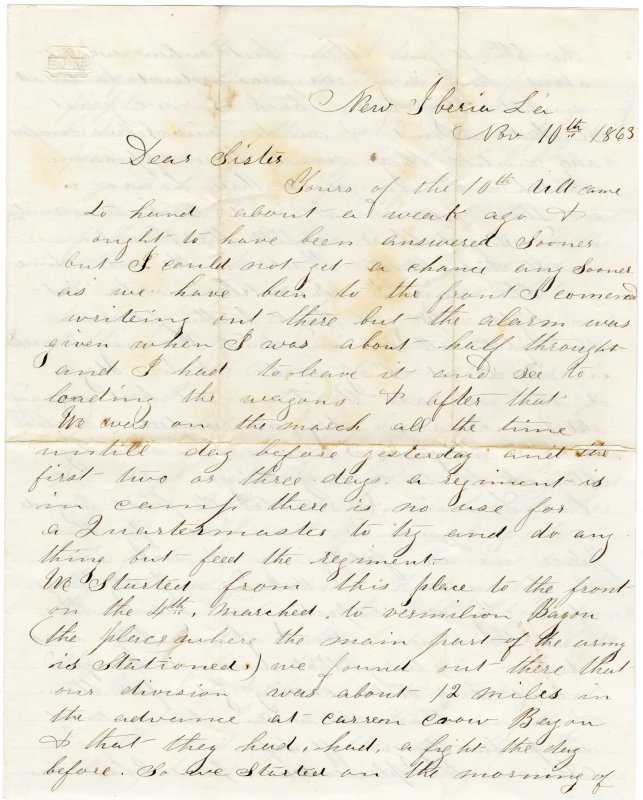 New Iberia La
Nov 10th 1863
Dear Sister
Yours of the 10th Ult came
to hand about a weak ago &
ought to have been answered Sooner
but I could not get a chance any Sooner
as we have been to the front I comencd
writeing out there but the alarm was
given when I was about half throught
and I had to leave it and See to
loading the wagons & after that
We was on the march all the time
untill day before yesterday and the
first two or three days a regiment is
in camp there is no use for
a Quartermaster to try and do any
thing but feed the regiment
We Started from this place to the front
on the 4th, marched to vermilion Bayou
(the place where the main part of the army
is Stationed.) we found out there that
our division was about 12 miles in
the advance at carren crow Bayou
& that they had, had a fight the day
before. So we Started on the morning of